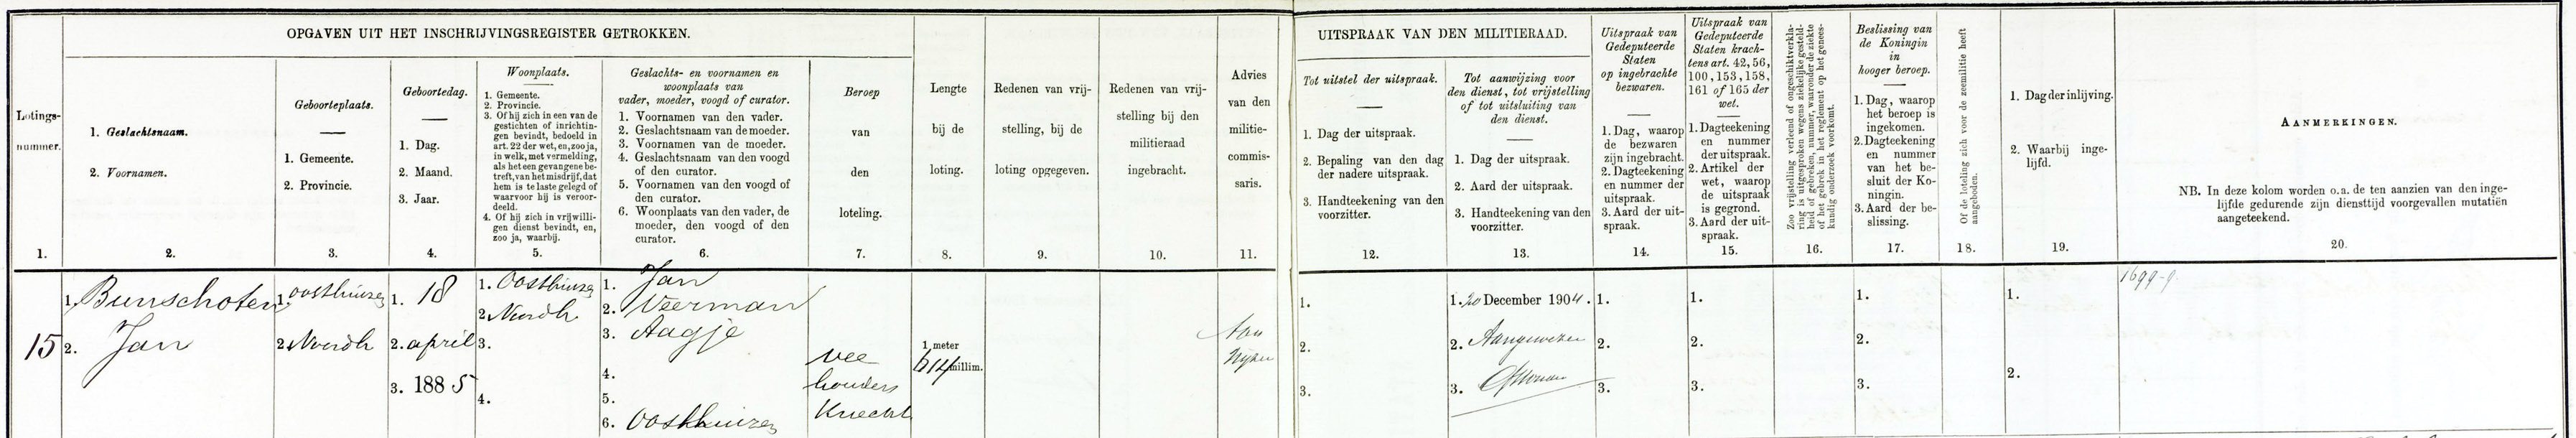 OPGAVEN UIT HET INSCHRIJVINGSREGISTER GETROKKEN.
Lotings-
nummer.
1.
1. Geslachtsnaam.
2. Voornamen.
2.
Geboorteplaats.
1. Gemeente.
2. Provincie.
3.
Geboortedag.
1. Dag.
2. Maand.
3. Jaar.
4.
Woonplaats.
1. Gemeente.
2. Provincie.
3. Of hij zich in een van de
gestichten of inrichtin-
gen bevindt, bedoeld in
art. 22 der wet, en, zoo ja,
in welk, met vermelding,
als het een gevangene be-
treft, van het misdrijf, dat
hem is te laste gelegd of
waarvoor hij is veroor-
deeld.
4. Of hij zich in vrijwilli-
gen dienst bevindt, en,
zoo ja, waarbij.
5.
Geslachts- en voornamen en
woonplaats van
vader, moeder, voogd of curator.
1. Voornamen van den vader.
2. Geslachtsnaam van de moeder.
3. Voornamen van de moeder.
4. Geslachtsnaam van den voogd
of den curator.
5. Voornamen van den voogd of
den curator.
6. Woonplaats van den vader, de
moeder, den voogd of den
curator.
6.
Beroep
van
den
loteling.
7.
Lengte
bij de
loting.
8.
Redenen van vrij-
stelling, bij de
loting opgegeven.
9.
Redenen van vrij-
stelling bij den
militieraad
ingebracht.
10.
Advies
van den
militie-
commis-
saris.
11.
UITSPRAAK VAN DEN MILITIERAAD.
Tot uitstel der uitspraak.
1. Dag der uitspraak.
2. Bepaling van den dag
der nadere uitspraak.
3. Handteekening van den
voorzitter.
12.
Tot aanwijzing voor
den dienst, tot vrijstelling
of tot uitsluiting van
den dienst.
1. Dag der uitspraak.
2. Aard der uitspraak.
3. Handteekening van den
voorzitter.
13.
Uitspraak van
Gedeputeerde
Staten
op ingebrachte
bezwaren.
1. Dag, waarop
de bezwaren
zijn ingebracht.
2. Dagteekening
en nummer der
uitspraak.
3. Aard der uit-
spraak.
14.
Uitspraak van
Gedeputeerde
Staten krach-
tens art. 42, 56,
100, 153, 158,
161 of 165 der
wet.
1. Dagteekening
en nummer
der uitspraak.
2. Artikel der
wet, waarop
de uitspraak
is gegrond.
3. Aard der uit-
spraak.
15.
Zoo vrijstelling verleend of ongeschiktverkla-
ring is uitgesproken wegens ziekelijke gesteld-
heid of gebreken, nummer, waaronder de ziekte
of het gebrek in het reglement op het genees-
kundig onderzoek voorkomt.
16.
Beslissing van
de Koningin
in
hooger beroep.
1. Dag, waarop
het beroep is
ingekomen.
2. Dagteekening
en nummer
van het be-
sluit der Ko-
ningin.
3. Aard der be-
slissing.
17.
Of de loteling zich voor de zeemilitie heeft
aangeboden.
18.
1. Dag der inlijving.
2. Waarbij inge-
lijfd.
19.
AANMERKINGEN.
NB. In deze kolom worden o.a. de ten aanzien van den inge-
lijfde gedurende zijn diensttijd voorgevallen mutatiën
aangeteekend.
20.
15
1. Bunschoten
2. Jan
1. Oosthuizen
2. Noordh
1. 18
2. april
3. 1885
1. Oosthuizen
2. Noordh
3.
4.
1. Jan
2. Veerman
3. Aagje
4.
5.
6. Oosthuizen
vee
houders
Knecht
1 meter
614 millim.
Aan
wijzen
1.
2.
3.
1. 20 December 1904.
2. Aangewezen
3.
1.
2.
3.
1.
2.
3.
1.
2.
3.
1.
2.
1699-9